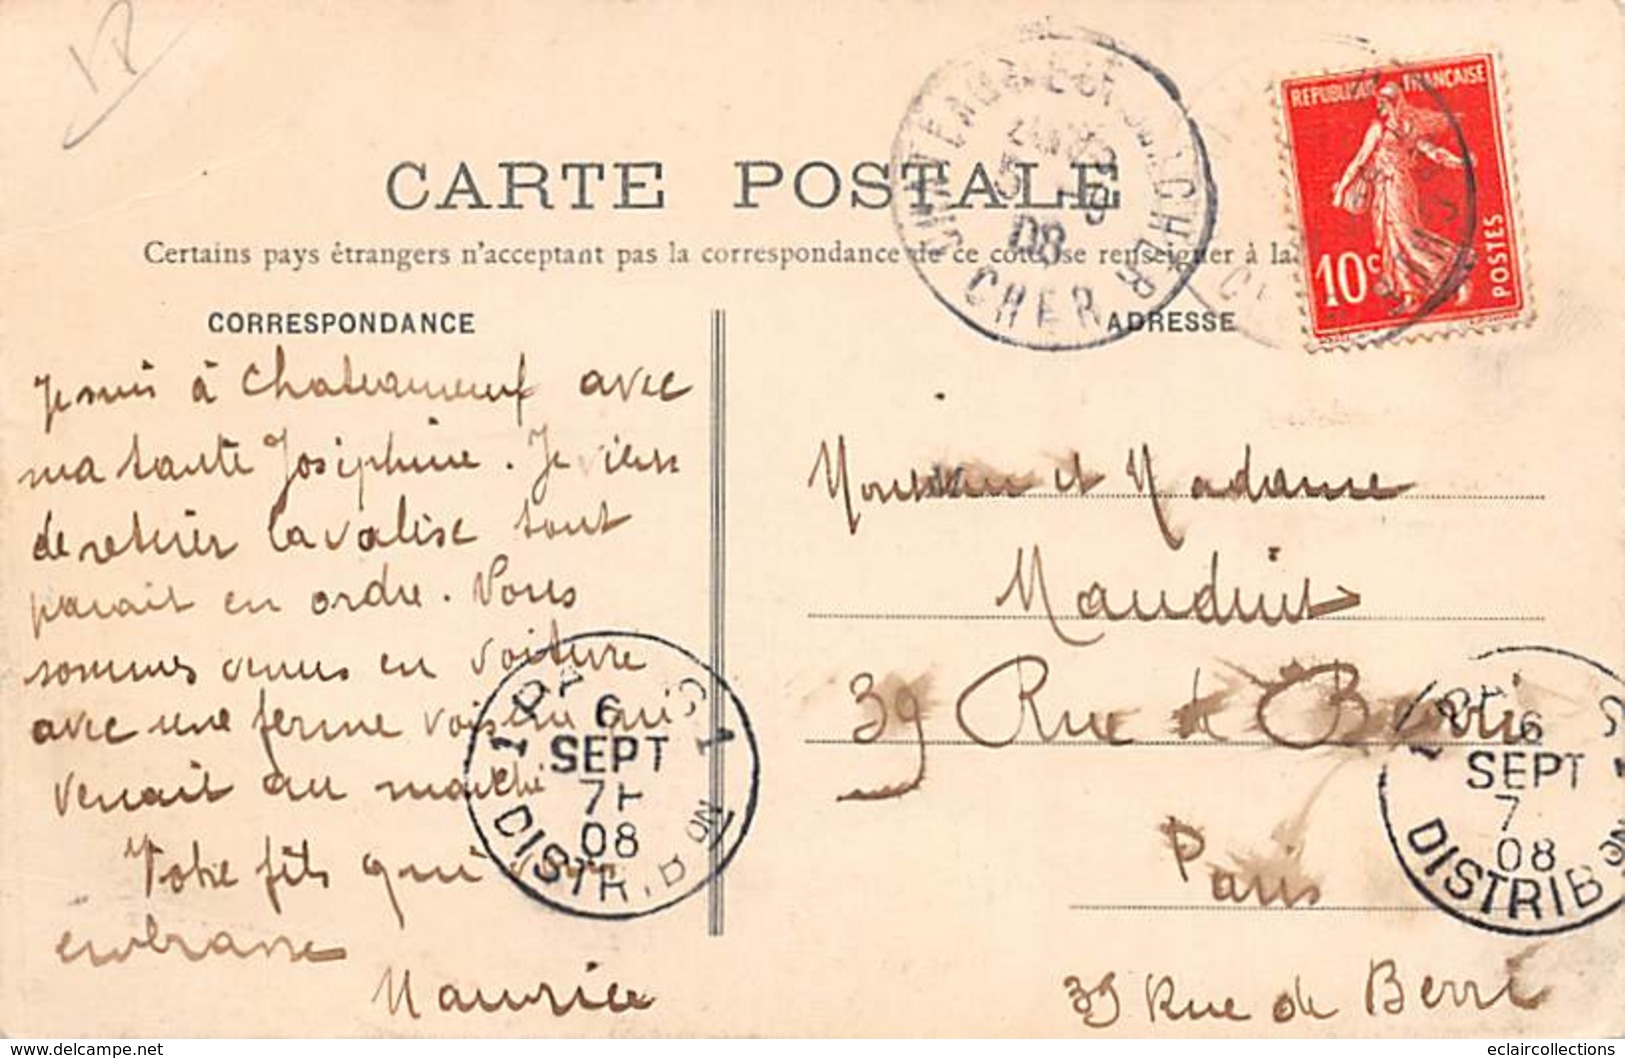 CARTE POSTALE
Certains pays étrangers n'acceptant pas la correspondance de ce côté, se renseigner à la
CORRESPONDANCE
Je suis à Chateauneuf avec
ma tante Joséphine. Je viens
de retirer la valise tout
parait en ordre. Nous
sommes venus en voiture
avec une ferme voisine qui
venait au marché
Votre fils qui vous
embrasse
Maurice
CHATEAUNEUF-SUR-CHER
CHER
5 -9
08
REPUBLIQUE FRANÇAISE
10c
POSTES
ADRESSE
Monsieur et Madame
Mauduit
39 Rue de Berri
Paris
39 Rue de Berri
6
SEPT
7H
08
DISTRIBON
6
SEPT
7
08
DISTRIBON
www.delcampe.net
eclaircollections